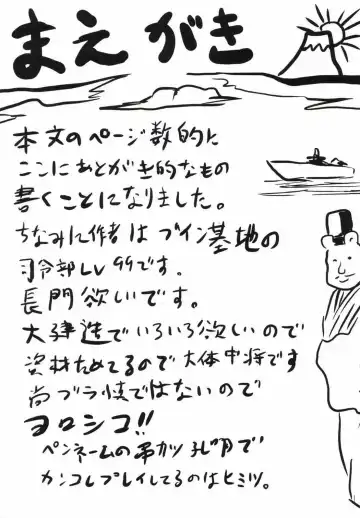 まえがき
本文のページ数的に
ここにあとがき的なもの
書くことになりました。
ちなみに作者はブイン基地の
司令部LV99です。
長門欲しいです。
大建造でいろいろ欲しいので
資材ためてるので大体中将です
尚ブラ鎮ではないので
ヨロシコ!!
ペンネームの串カツ
カンコレプレイしてるのはヒミツ。